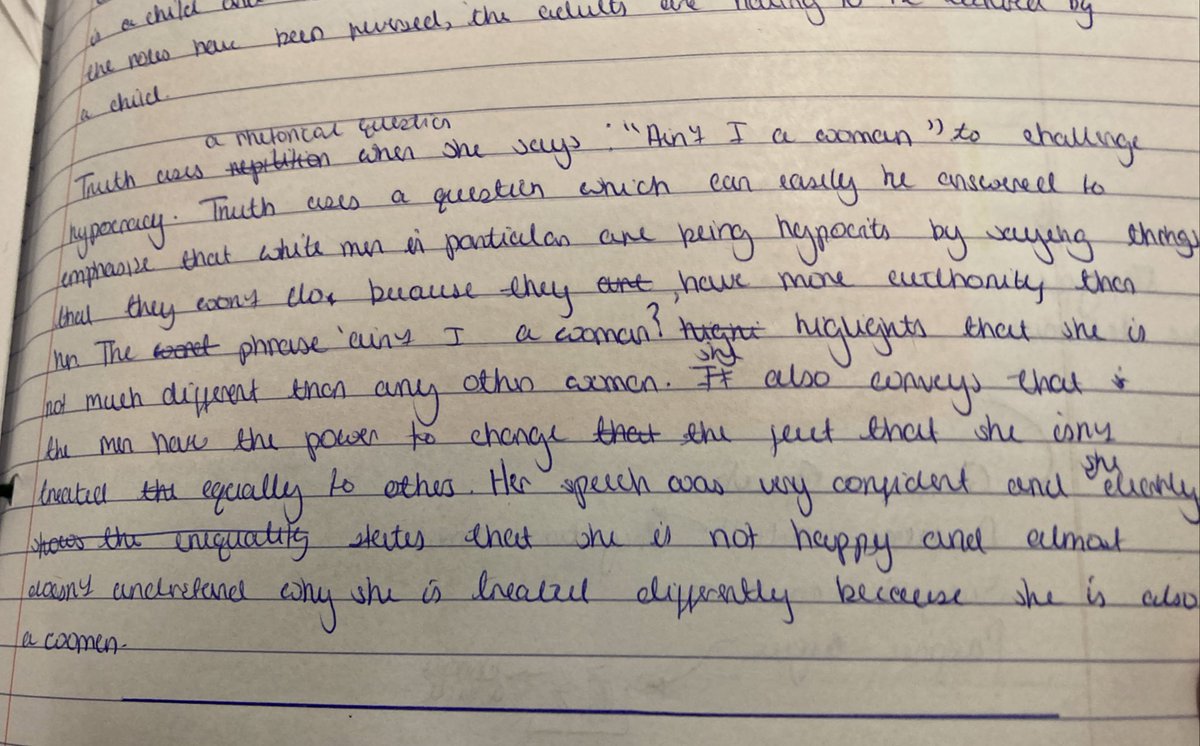 is a child
the roles have been reversed, the adults are having to be by
a child.
a rhetorical question
Truth uses repitition when she says : "Ain't I a woman" to challenge
hypocracy. Truth uses a question which can easily be answered to
emphasize that white men in particular are being hypocrits by saying things
that they won't do, because they arnt have more authority then
her. The word phrase 'ain't I a woman? highlights that she is
not much different then any other woman. It she also conveys that
the men have the power to change that the fact that she isn't
treated the equally to others. Her speech was very confident and she clearly
shows the inequality states that she is not happy and almost
doesn't understand why she is treated differently because she is also
a women.